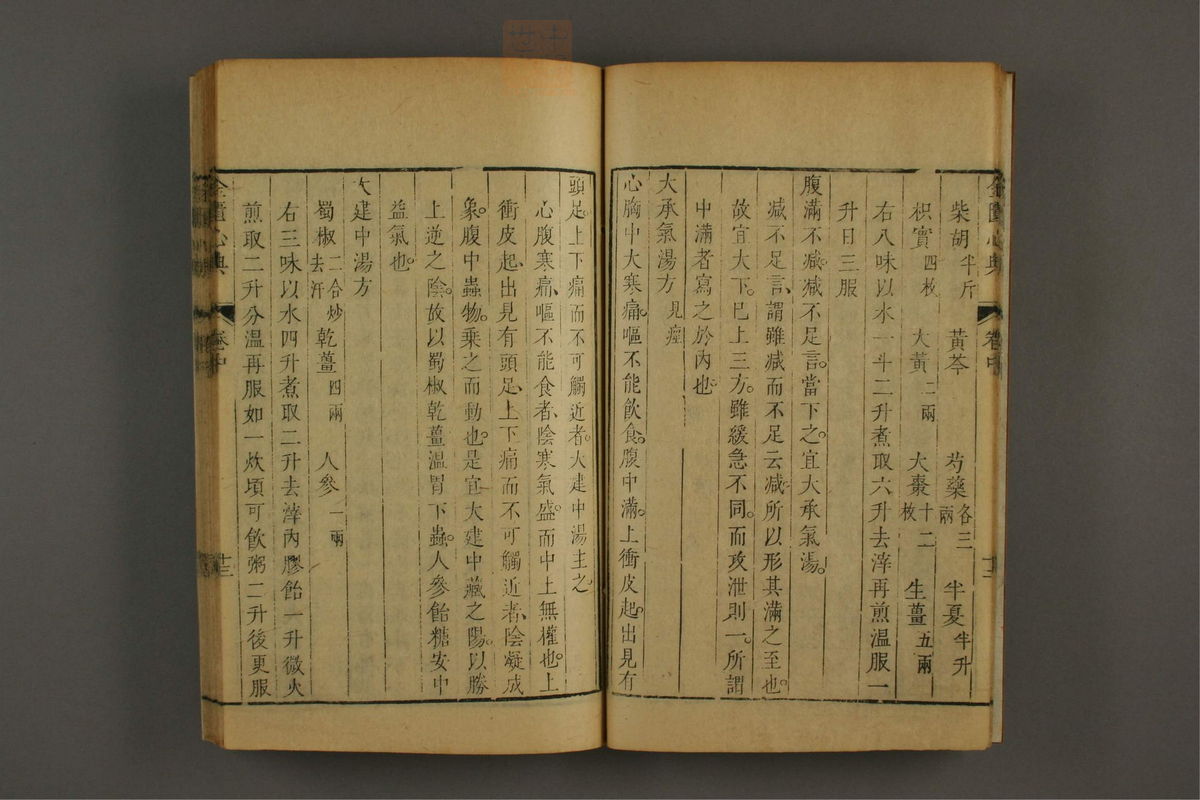 金匱心典 卷中 十二
柴胡半斤 黃芩 芍藥各三兩 半夏半升
枳實四枚 大黃二兩 大棗十二枚 生薑五兩
右八味以水一斗二升煮取六升去滓再煎溫服一
升日三服
腹滿不減。減不足言。當下之。宜大承氣湯。
減不足言、謂雖減而不足云減。所以形其滿之至也。
故宜大下。已上三方。雖緩急不同。而攻泄則一。所謂
中滿者寫之於內也
大承氣湯方 見痙
心胸中大寒痛。嘔不能飲食。腹中滿。上衝皮起。出見有
頭足。上下痛而不可觸近者。大建中湯主之。
心腹寒痛、嘔不能食者、陰寒氣盛。而中土無權也。上
衝皮起、出見有頭足、上下痛而不可觸近者、陰凝成
象。腹中蟲物。乘之而動也。是宜大建中藏之陽。以勝
上逆之陰。故以蜀椒乾薑溫胃下蟲。人參飴糖安中
益氣也。
大建中湯方
蜀椒二合炒去汗 乾薑四兩 人參一兩
右三味以水四升煮取二升去滓內膠飴一升微火
煎取二升分溫再服如一炊頃可飲粥二升後更服
金匱心典 卷中 十三